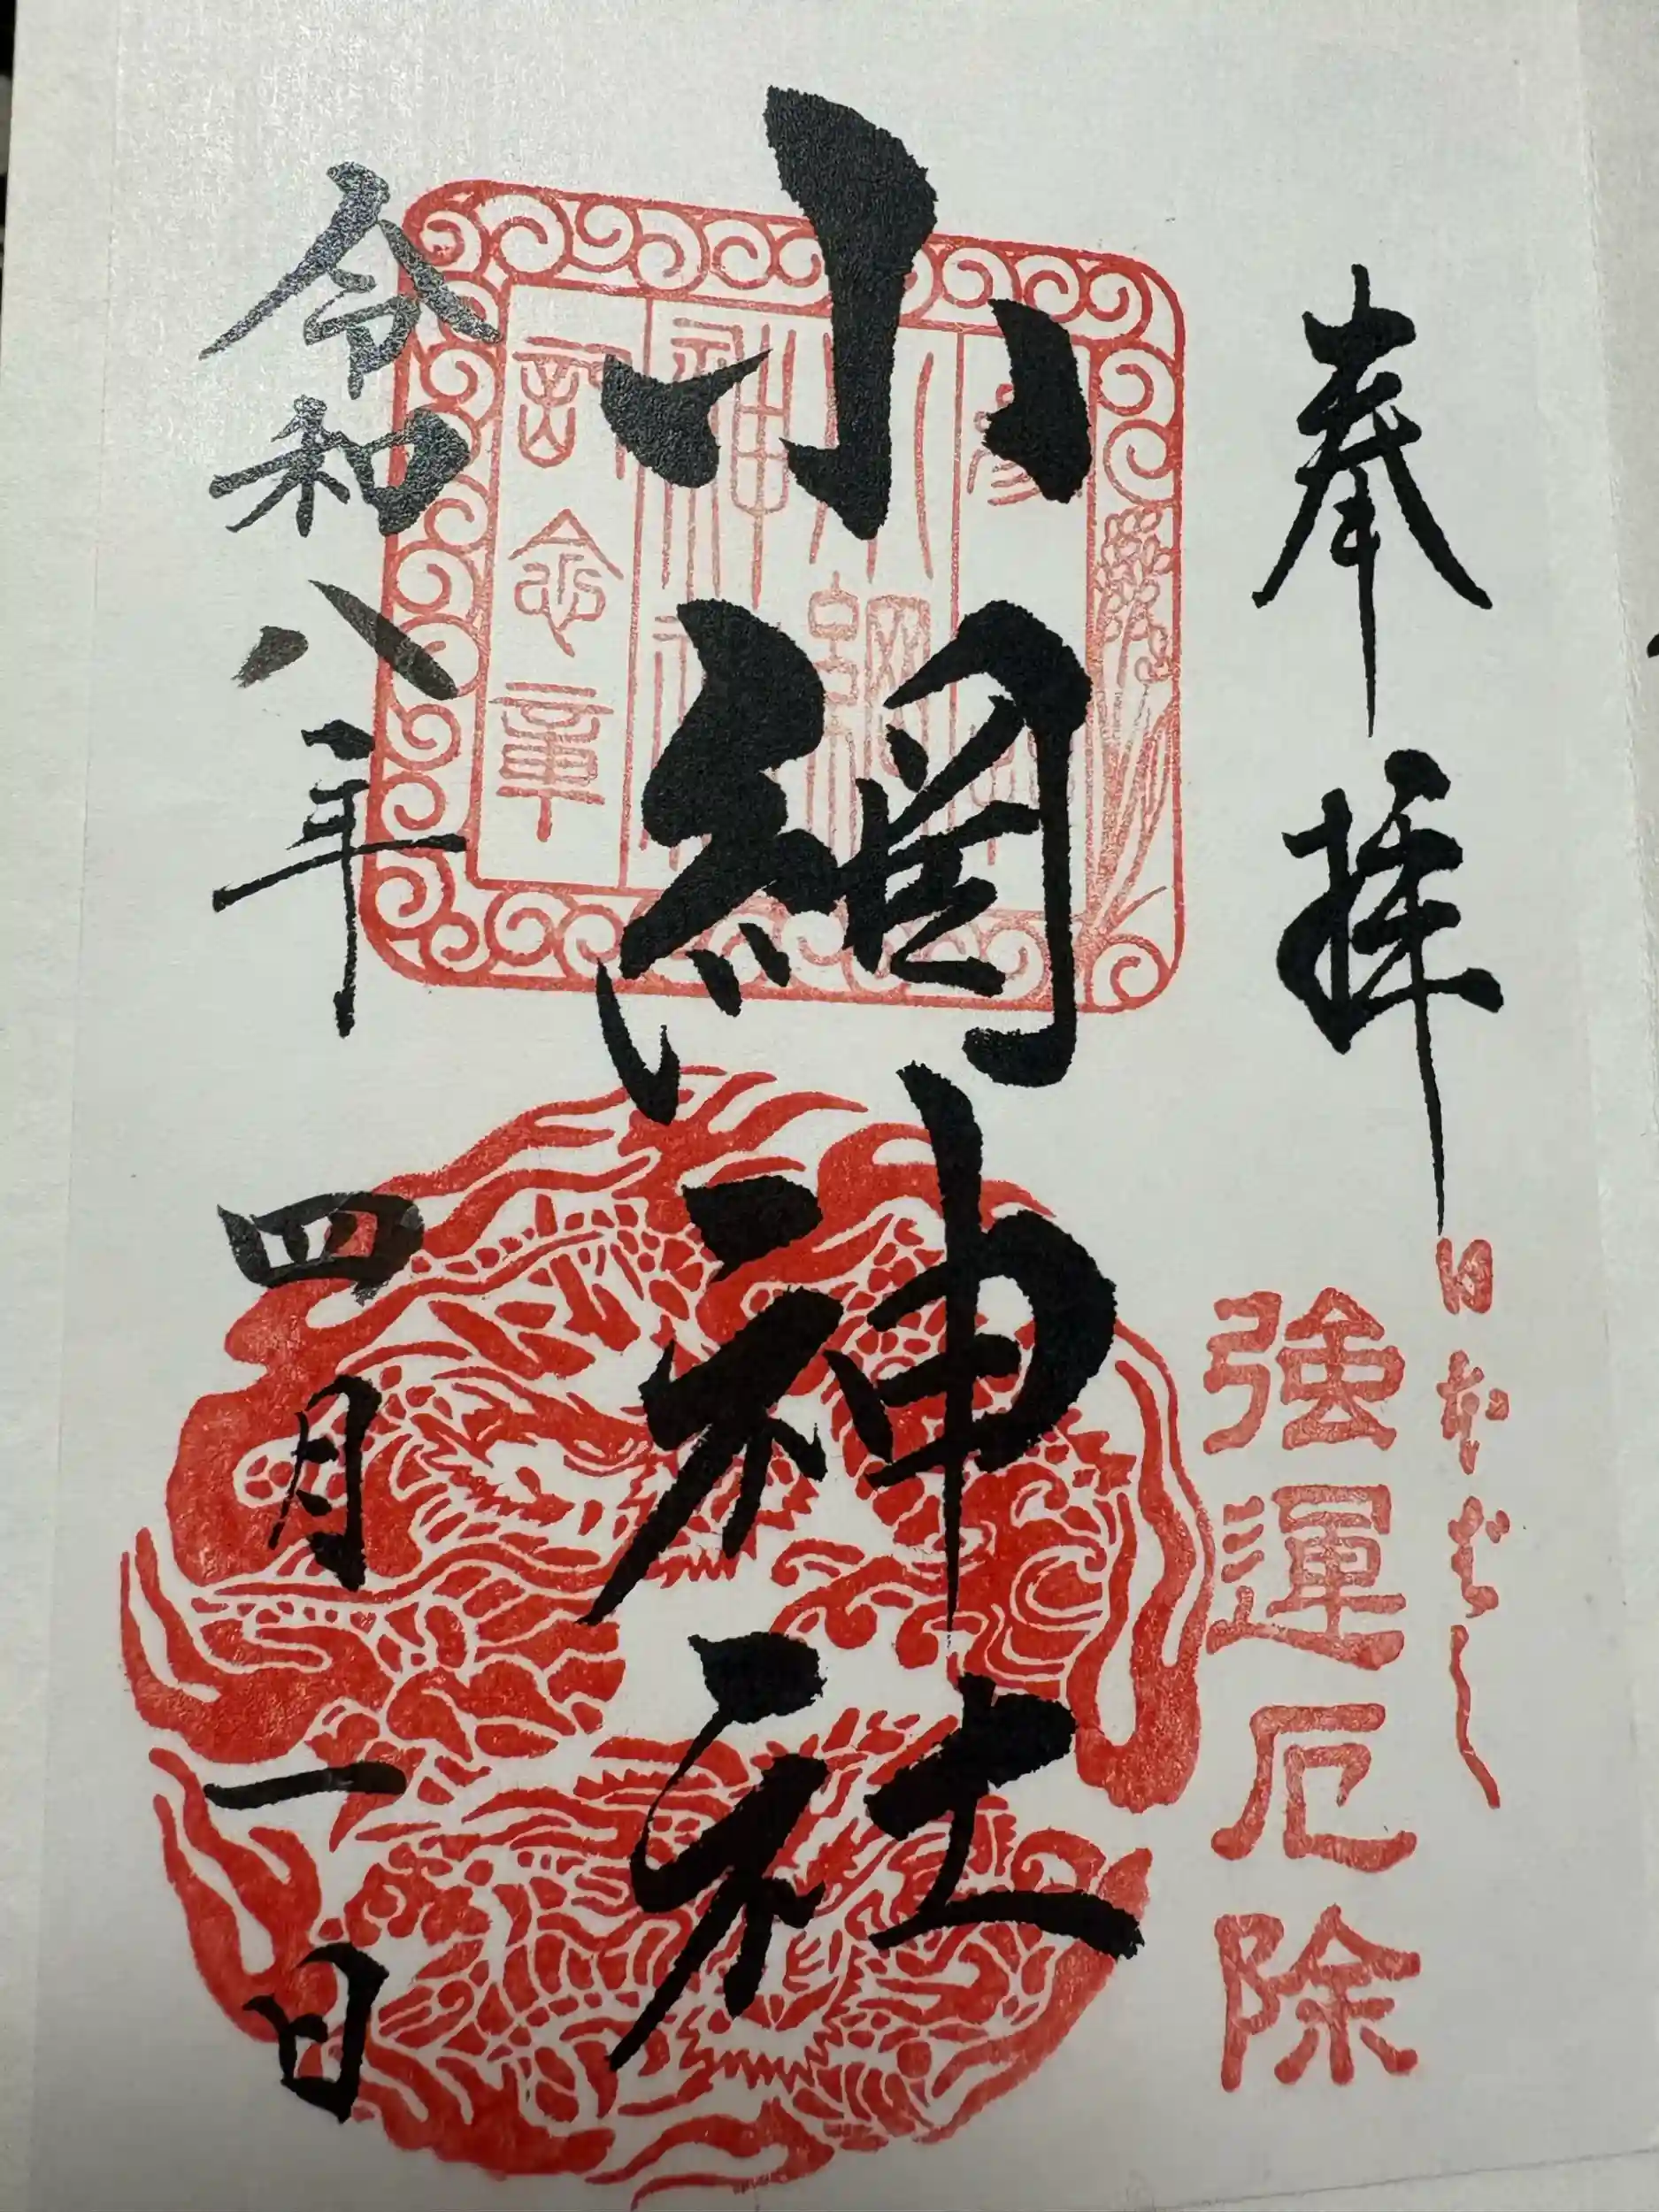 奉拝
日本ばし
強運厄除
小網神社
参拝
小網
神社
記念章
令和八年四月一日